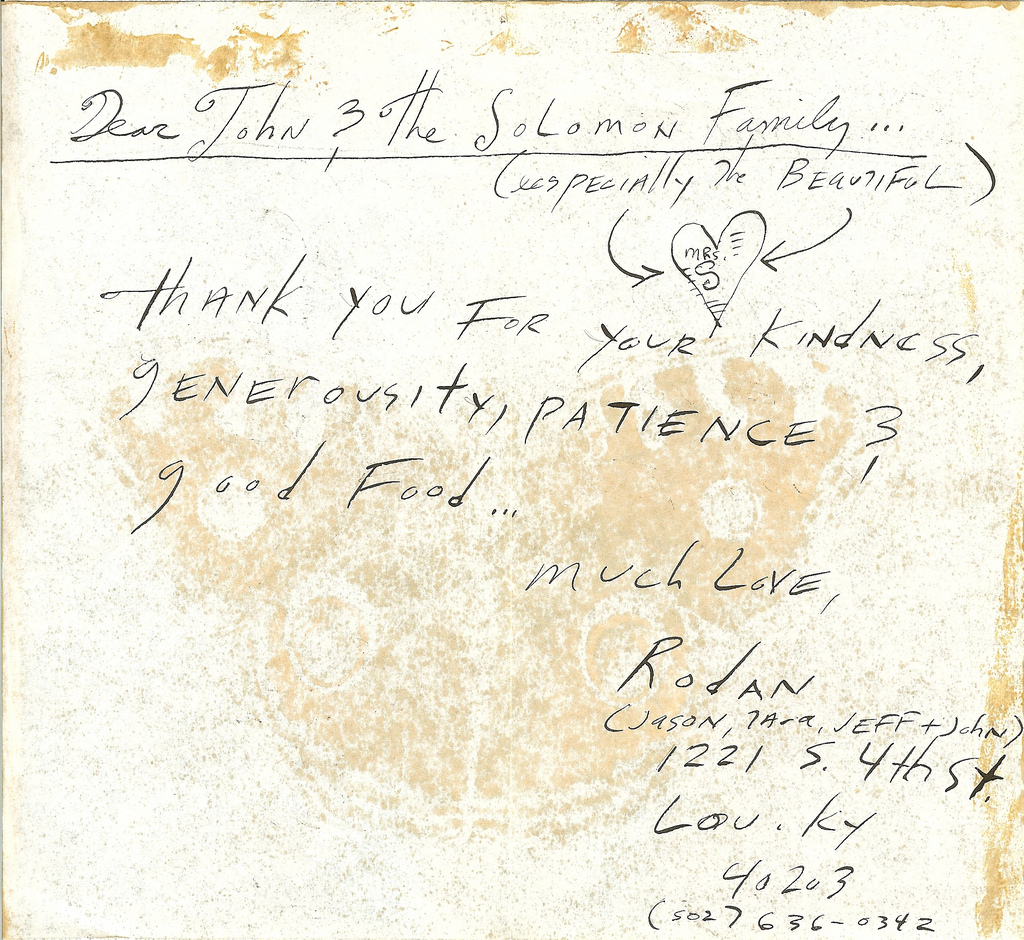 Dear John & the Solomon Family...
(especially the BEAUTIFUL)
MRS. S
thANK you FOR your KindNess,
gENErousity, PATIENCE &
good Food...
much LovE,
RodAN
(Jason, Tara, JEFF + John)
1221 S. 4th St.
Lou. Ky
40203
(502) 636-0342